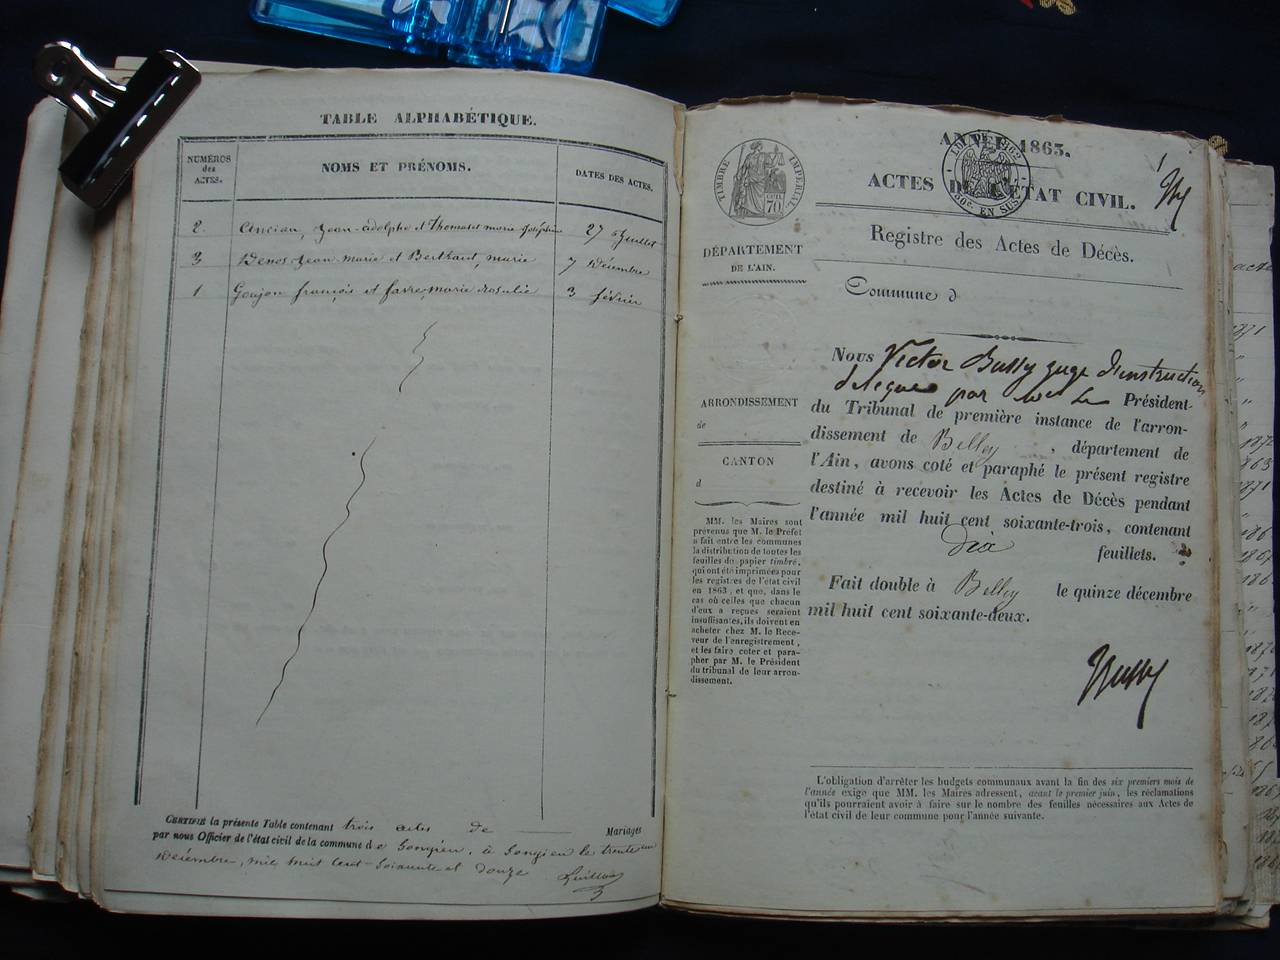 TABLE ALPHABÉTIQUE.
NUMÉROS des ACTES.
NOMS ET PRÉNOMS.
DATES DES ACTES.
2. Ancian, Jean-adolphe et Thomasset marie-Joséphine 27 Juillet
3 Benos Jean-Marie et Berthaut, marie 7 décembre
1 Goujon françois et favre, marie rosalie 3 février
CERTIFIÉ la présente Table contenant trois actes de Mariages
par nous Officier de l'état civil de la commune de Songieu, à Songieu le trente un
Décembre, mil huit cent-soixante et douze
ANNÉE 1863.
TIMBRE IMPÉRIAL
70
LOI DE 1862
50c. EN SUS
ACTES DE L'ÉTAT CIVIL.
Registre des Actes de Décès.
DÉPARTEMENT
DE L'AIN.
Commune d
Nous Victor Bussy juge d'instruction
délégué par Mr Le Président
du Tribunal de première instance de l'arron-
dissement de Belley, département de
l'Ain, avons coté et paraphé le présent registre
destiné à recevoir les Actes de Décès pendant
l'année mil huit cent soixante-trois, contenant
dix feuillets.
Fait double à Belley le quinze décembre
mil huit cent soixante-deux.
ARRONDISSEMENT
de
CANTON
d
MM. les Maires sont
prévenus que M. le Préfet
a fait entre les communes
la distribution de toutes les
feuilles du papier timbré,
qui ont été imprimées pour
les registres de l'état civil
en 1863, et que, dans le
cas où celles que chacun
d'eux a reçues seraient
insuffisantes, ils doivent en
acheter chez M. le Rece-
veur de l'enregistrement,
et les faire coter et para-
pher par M. le Président
du tribunal de leur arron-
dissement.
L'obligation d'arrêter les budgets communaux avant la fin des six premiers mois de
l'année exige que MM. les Maires adressent, avant le premier juin, les réclamations
qu'ils pourraient avoir à faire sur le nombre des feuilles nécessaires aux Actes de
l'état civil de leur commune pour l'année suivante.